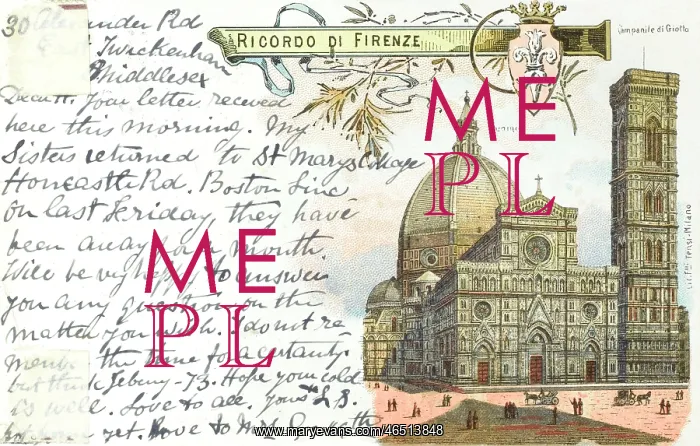 30 Alexander Rd
East Twickenham
Middlesex
Dear H. Your letter received
here this morning. My
Sisters returned to St Marys College
Horncastle Rd. Boston Linc
on last Friday they have
been away a month
Will be very happy to answer
you any question on the
matter you wish. I do not re
member the time for a certainty.
but think Febuny - 73. Hope your cold
is well. Love to all yours L.B.
yet. Love to
RICORDO DI FIRENZE
Campanile di Giotto
Lit. Flli Tensi-Milano
ME
PL
ME
PL
www.maryevans.com/46513848